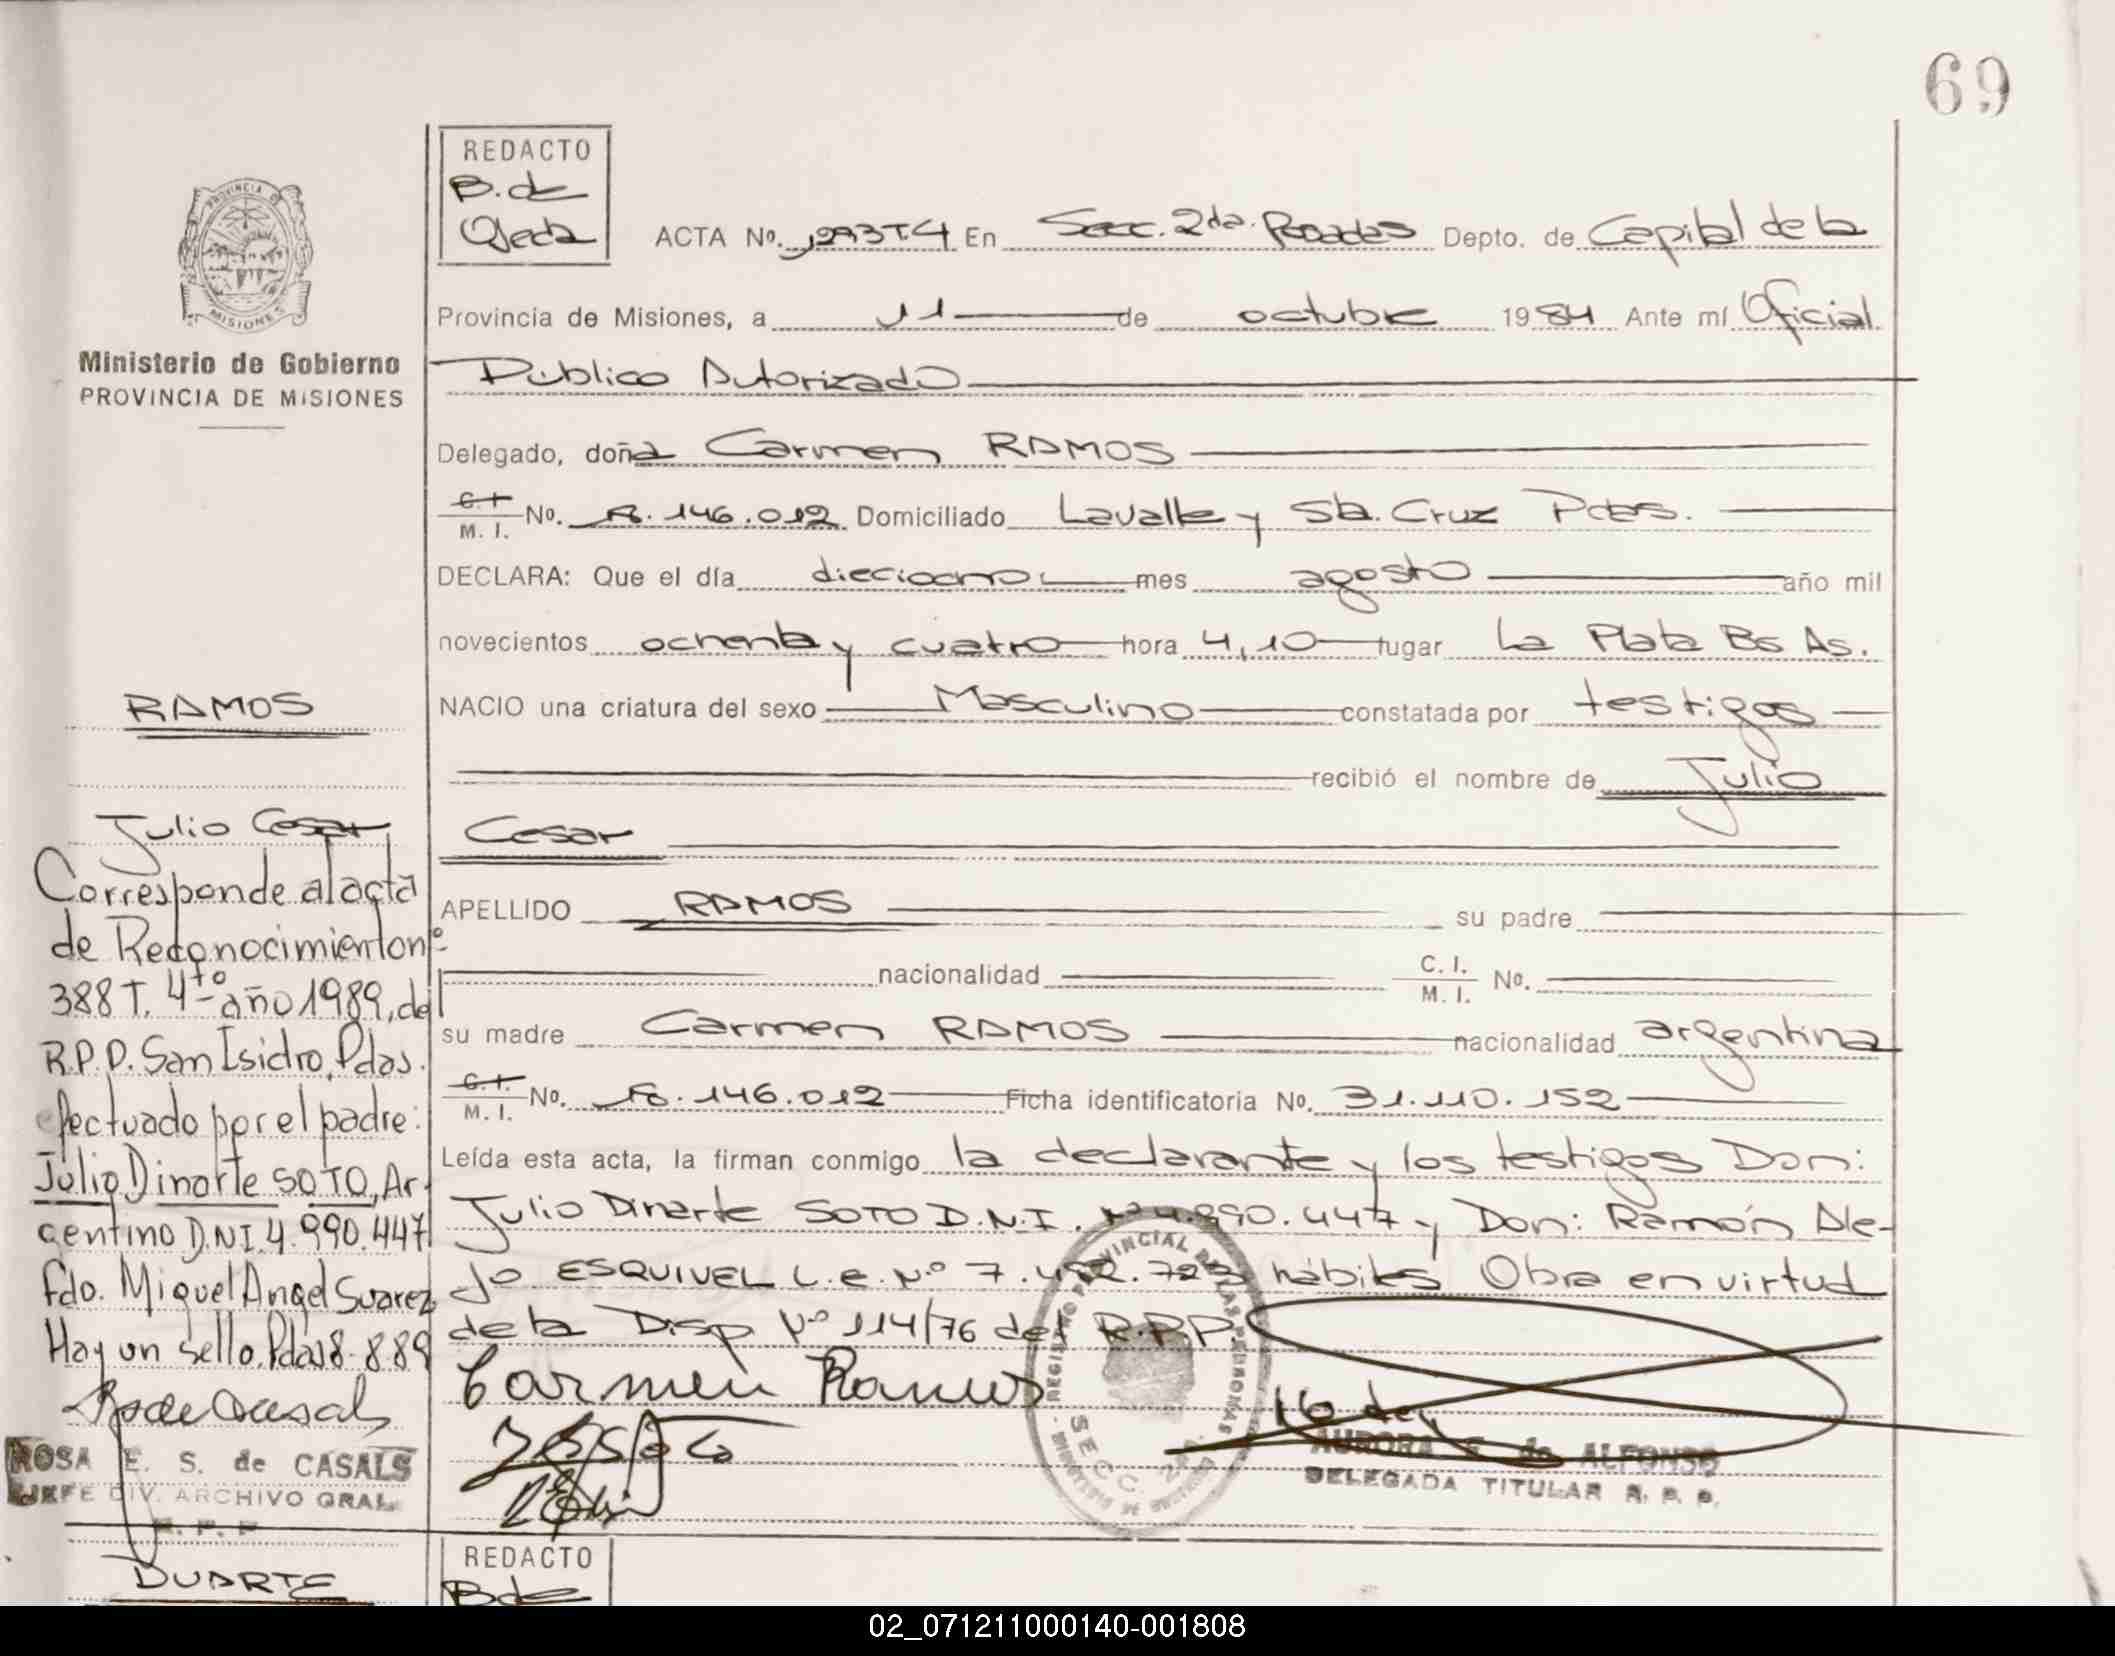 69
REDACTO
B. de
Ojeda
ACTA No. 1293T.4 En Secc. 2da. Posadas Depto. de Capital de la
Provincia de Misiones, a 11 de octubre 1984 Ante mí Oficial
Público Autorizado
Delegado, doña Carmen RAMOS
C.I. M. I. No. 146.012 Domiciliado Lavalle y Sta. Cruz Pdas.
DECLARA: Que el día mes agosto año mil
novecientos ochenta y cuatro hora 4,10 lugar La Plata Bs As.
NACIO una criatura del sexo Masculino constatada por testigos
recibió el nombre de Julio
Cesar
APELLIDO RAMOS su padre
nacionalidad C. I. M. I. No.
su madre Carmen RAMOS nacionalidad argentina
C.I. M. I. No. 146.012 Ficha identificatoria No. 31.110.152
Leída esta acta, la firman conmigo la declarante y los testigos Don:
Julio Dinarte SOTO D.N.I. Nº 4.990.447 y Don: Ramón Ale-
jo ESQUIVEL L.e. Nº 7. hábiles Obra en virtud
de la Disp Nº 114/76 del R.P.P.
Carmen Ramos
REGISTRO PROVINCIAL DE LAS PERSONAS
SECC. 2da.
AURORA de ALFONSO
DELEGADA TITULAR R. P. P.
PROVINCIA DE
MISIONES
Ministerio de Gobierno
PROVINCIA DE MISIONES
RAMOS
Julio Cesar
Corresponde al acta
de Reconocimiento nº
388 T. 4to año 1989, del
R.P.P. San Isidro, Pdas.
efectuado por el padre:
Julio Dinarte SOTO, Ar-
gentino D.N.I. 4.990.447
Fdo. Miguel Angel Suarez
Hay un sello. Pdas 8-8.89
ROSA E. S. de CASALS
JEFE DIV. ARCHIVO GRAL.
R. P. P
DUARTE
REDACTO
B de
02_071211000140-001808